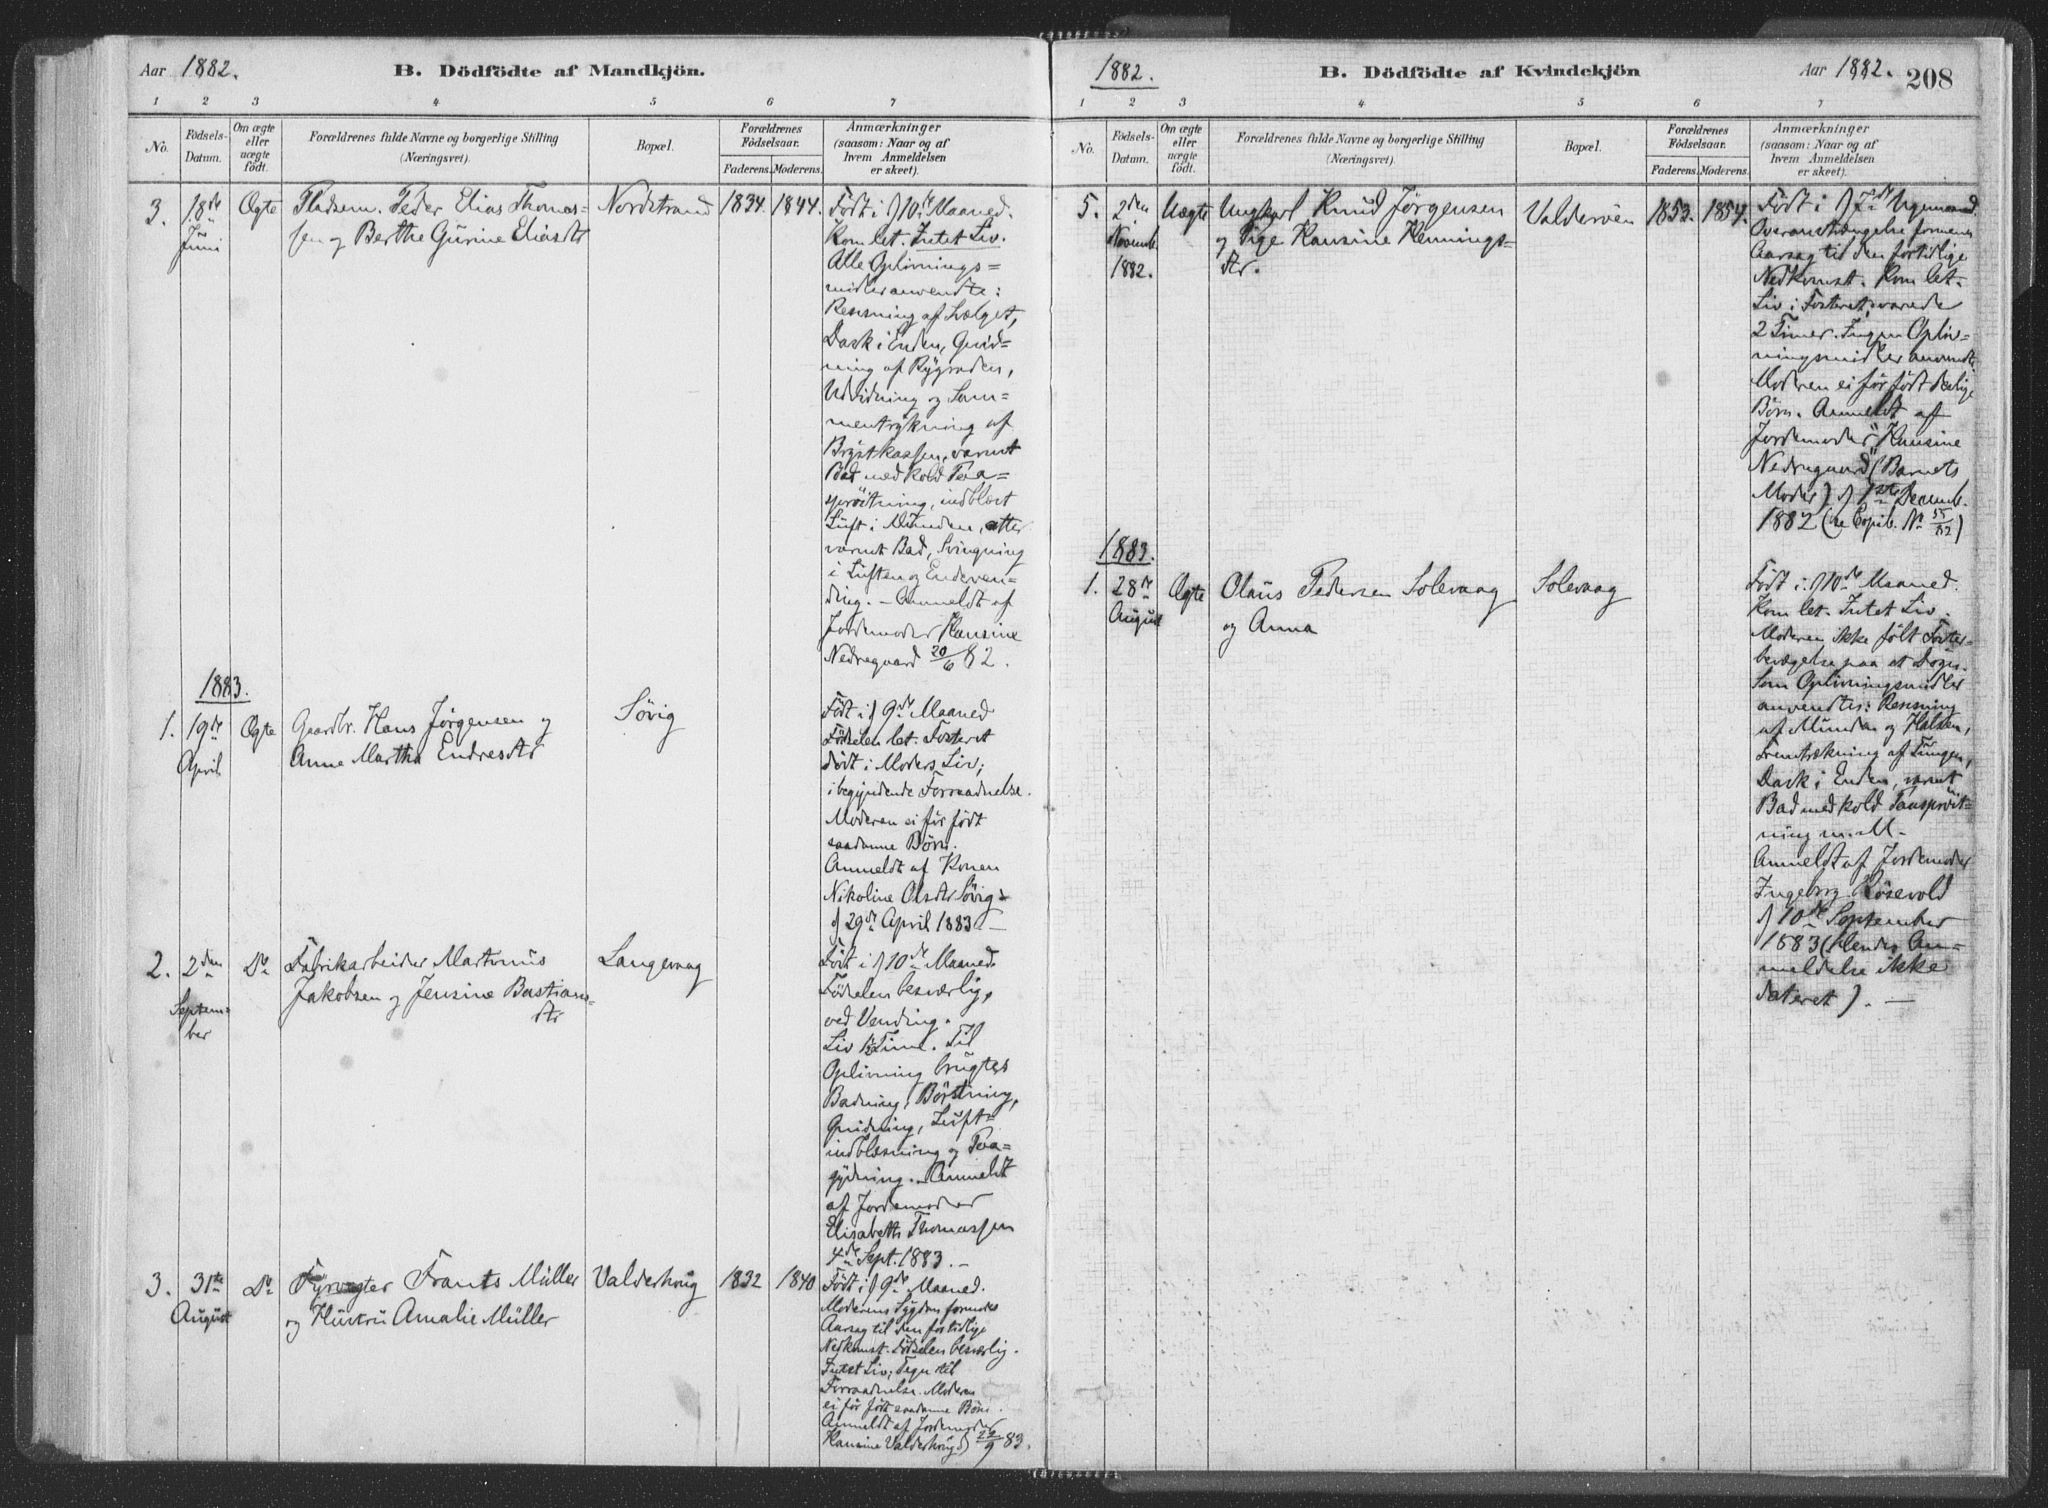 Aar 1882.
B. Dödfödte af Mandkjön.
1 2 3 4 5 6 7
No.
Födsels-
Datum.
Om ægte
eller
uægte
födt.
Forældrenes fulde Navne og borgerlige Stilling
(Næringsvei).
Bopæl.
Forældrenes
Födselsaar.
Faderens. Moderens.
Anmærkninger
(saasom: Naar og af
hvem Anmeldelsen
er skeet).
3. 18de
Juni
Ægte
Pladsem. Peder Elias Thomas-
sen og Berthe Gurine Eliasdtr
Nordstrand
1834. 1844.
Født i d 10de Maaned.
Kom let. Intet Liv.
Alle Oplivnings=
midler anvendte:
Rensning af Svælget,
Dask i Enden, Gnid=
ning af Rygraden,
Udvidning og Sam=
mentrykning af
Brystkassen, varmt
Bad med kold Paa=
sprøitning, indblæst
Luft i Munden, atter
varmt Bad, Svingning
i Luften og Endeven=
ding. - Anmeldt af
Jordemoder Hansine
Nedregaard 20/6 82.
1883.
1. 19de
April
Ægte
Gaardbr. Hans Jørgensen og
Anne Martha Endresdtr
Søvig
Født i d 9de Maaned
Fødselen let. Fosteret
dødt i Moders Liv;
i begyndende Forraadnelse.
Moderen ei før født
saadanne Børn.
Anmeldt af Konen
Nikoline Olsdtr Søvig
d 29de April 1883 -
2. 2den
Septem=
ber
Do
Fabrikarbeider Martinus
Jakobsen og Jensine Bastians=
dtr
Langevaag
Født i d 10de Maaned
Fødselen besværlig,
ved Vending.
Liv ½ Time. Til
Oplivning brugtes
Badning, Børstning,
Gnidning, Luft=
indblæsning og Paa=
gydning. - Anmeldt
af Jordemoder
Elisabeth Thomassen
4de Sept. 1883. -
3. 31te
August
Do
Fyrvogter Frants Müller
og Hustru Amalie Müller
Valderhoug
1832 1840
Født i d 9de Maaned.
Moderens Sygdom formodes
Aarsag til den fortidlige
Nedkomst. Fødselen besværlig.
Intet Liv; Tegn til
Forraadnelse. Moderen
ei før født saadanne Børn.
Anmeldt af Jordemoder
Hansine Valderhoug d 24/9 83.
1882.
B. Dödfödte af Kvindekjön
Aar 1882. 208
1 2 3 4 5 6 7
No.
Födsels-
Datum.
Om ægte
eller
uægte
födt.
Forældrenes fulde Navne og borgerlige Stilling
(Næringsvei).
Bopæl.
Forældrenes
Födselsaar.
Faderens. Moderens.
Anmærkninger
(saasom: Naar og af
hvem Anmeldelsen
er skeet).
5. 2den
Novemb.
1882.
Uægte
Ungkarl Knud Jørgensen
og Pige Hansine Hennings=
dtr.
Valderöen
1853. 1854.
Født i d 7de
Overanstrængelse formenes
Aarsag til den fortidlige
Nedkomst. Kom let.
Liv i Fosteret, varede
2 Timer. Ingen Opliv=
ningsmidler anvendt.
Moderen ei før født deslige
Børn. Anmeldt af
Jordemoder Hansine
Nedregaard (Barnets
Moder) d 1ste Decemb.
1882 (se Copib. No 55/82)
1883.
1. 28de
August
Ægte
Olaus Pedersen Solevaag
og Anna
Solevaag
Født i d 10de Maaned.
Kom let. Intet Liv.
Moderen ikke følt Foster=
bevægelse paa et Døgn.
Som Oplivningsmidler
anvendtes: Rensning
af Munden og Halsen,
Fremtrækning af Tungen,
Dask i Enden, varmt
Bad med kold Paasprøit=
ning m. M.
Anmeldt af Jordemoder
Ingeborg Røsevold
d 10de September
1883 (Hendes An=
meldelse ikke
dateret). -